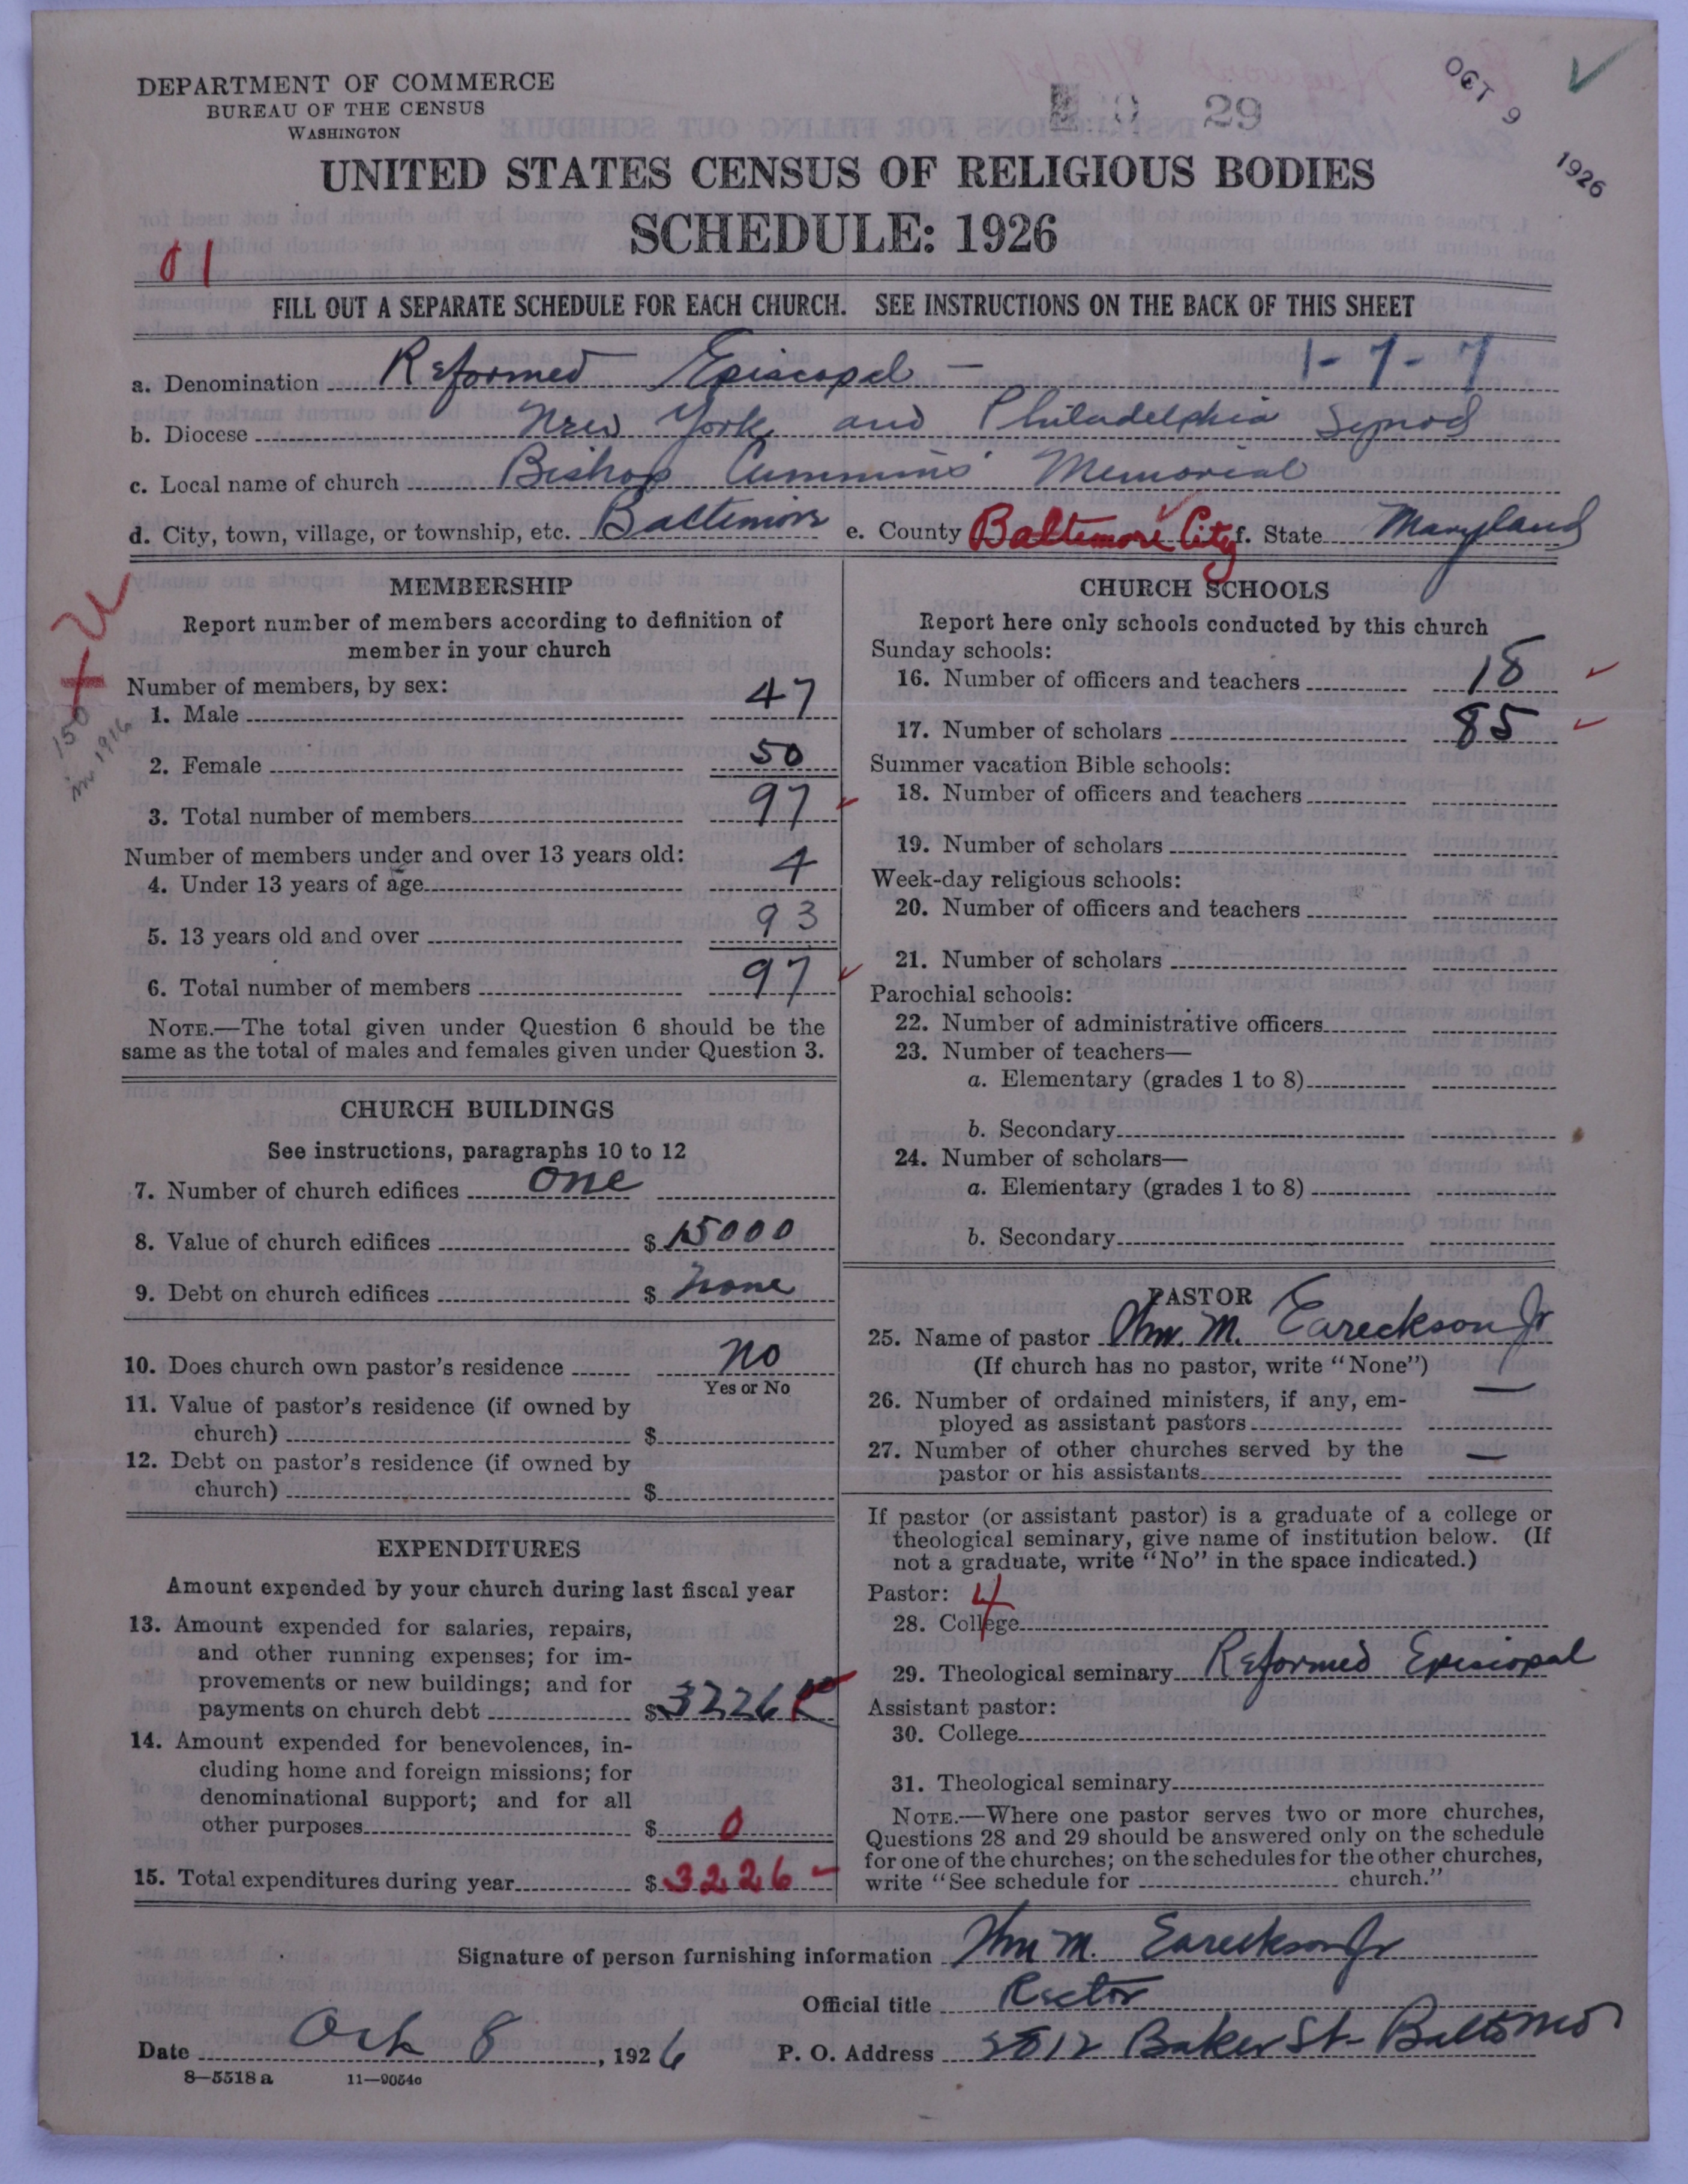 DEPARTMENT OF COMMERCE
BUREAU OF THE CENSUS
WASHINGTON
29
OCT 9 1926
UNITED STATES CENSUS OF RELIGIOUS BODIES
SCHEDULE: 1926
01
FILL OUT A SEPARATE SCHEDULE FOR EACH CHURCH. SEE INSTRUCTIONS ON THE BACK OF THIS SHEET
a. Denomination Reformed Episcopal - 1-7-7
b. Diocese New York and Philadelphia Synod
c. Local name of church Bishop Cummins Memorial
d. City, town, village, or township, etc. Baltimore e. County Baltimore City f. State Maryland
MEMBERSHIP
Report number of members according to definition of
member in your church
Number of members, by sex:
1. Male 47
150 in 1916
2. Female 50
3. Total number of members 97
Number of members under and over 13 years old:
4. Under 13 years of age 4
5. 13 years old and over 93
6. Total number of members 97
NOTE.—The total given under Question 6 should be the
same as the total of males and females given under Question 3.
CHURCH BUILDINGS
See instructions, paragraphs 10 to 12
7. Number of church edifices one
8. Value of church edifices $ 15000
9. Debt on church edifices $ none
10. Does church own pastor's residence no
Yes or No
11. Value of pastor's residence (if owned by
church) $
12. Debt on pastor's residence (if owned by
church) $
EXPENDITURES
Amount expended by your church during last fiscal year
13. Amount expended for salaries, repairs,
and other running expenses; for im-
provements or new buildings; and for
payments on church debt $ 3226
14. Amount expended for benevolences, in-
cluding home and foreign missions; for
denominational support; and for all
other purposes $ 0
15. Total expenditures during year $ 3226 -
CHURCH SCHOOLS
Report here only schools conducted by this church
Sunday schools:
16. Number of officers and teachers 18
17. Number of scholars 85
Summer vacation Bible schools:
18. Number of officers and teachers
19. Number of scholars
Week-day religious schools:
20. Number of officers and teachers
21. Number of scholars
Parochial schools:
22. Number of administrative officers
23. Number of teachers—
a. Elementary (grades 1 to 8)
b. Secondary
24. Number of scholars—
a. Elementary (grades 1 to 8)
b. Secondary
PASTOR
25. Name of pastor Wm. M. Eareckson Jr
(If church has no pastor, write "None")
26. Number of ordained ministers, if any, em-
ployed as assistant pastors —
27. Number of other churches served by the
pastor or his assistants —
If pastor (or assistant pastor) is a graduate of a college or
theological seminary, give name of institution below. (If
not a graduate, write "No" in the space indicated.)
Pastor: 4
28. College
29. Theological seminary Reformed Episcopal
Assistant pastor:
30. College
31. Theological seminary
NOTE.—Where one pastor serves two or more churches,
Questions 28 and 29 should be answered only on the schedule
for one of the churches; on the schedules for the other churches,
write "See schedule for church."
Signature of person furnishing information Wm M. Eareckson Jr
Official title Rector
Date Oct 8, 1926 P. O. Address Baker St - Balto Md
8—5518a 11—9054c